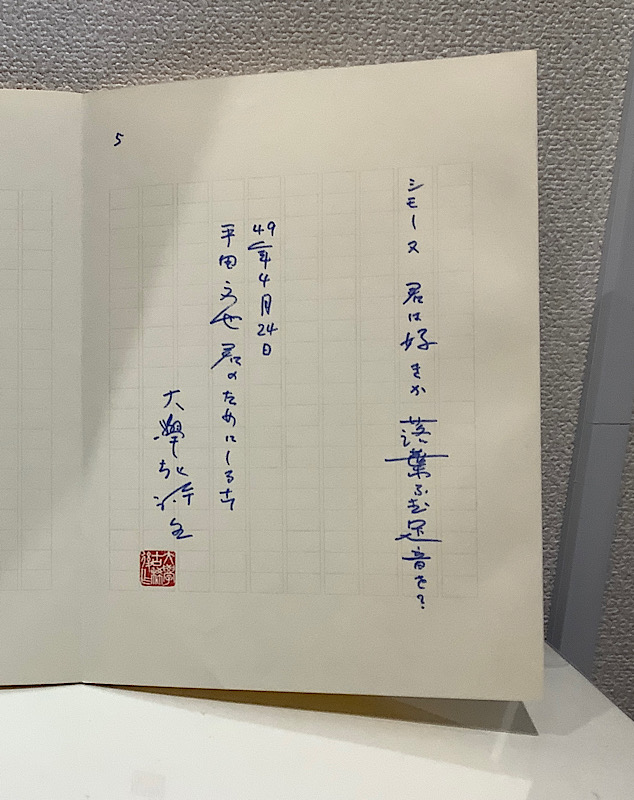 5
シモーヌ 君は好きか 落葉ふむ足音を?
49年4月24日
平田文也君のためにしるす
大學老詩生